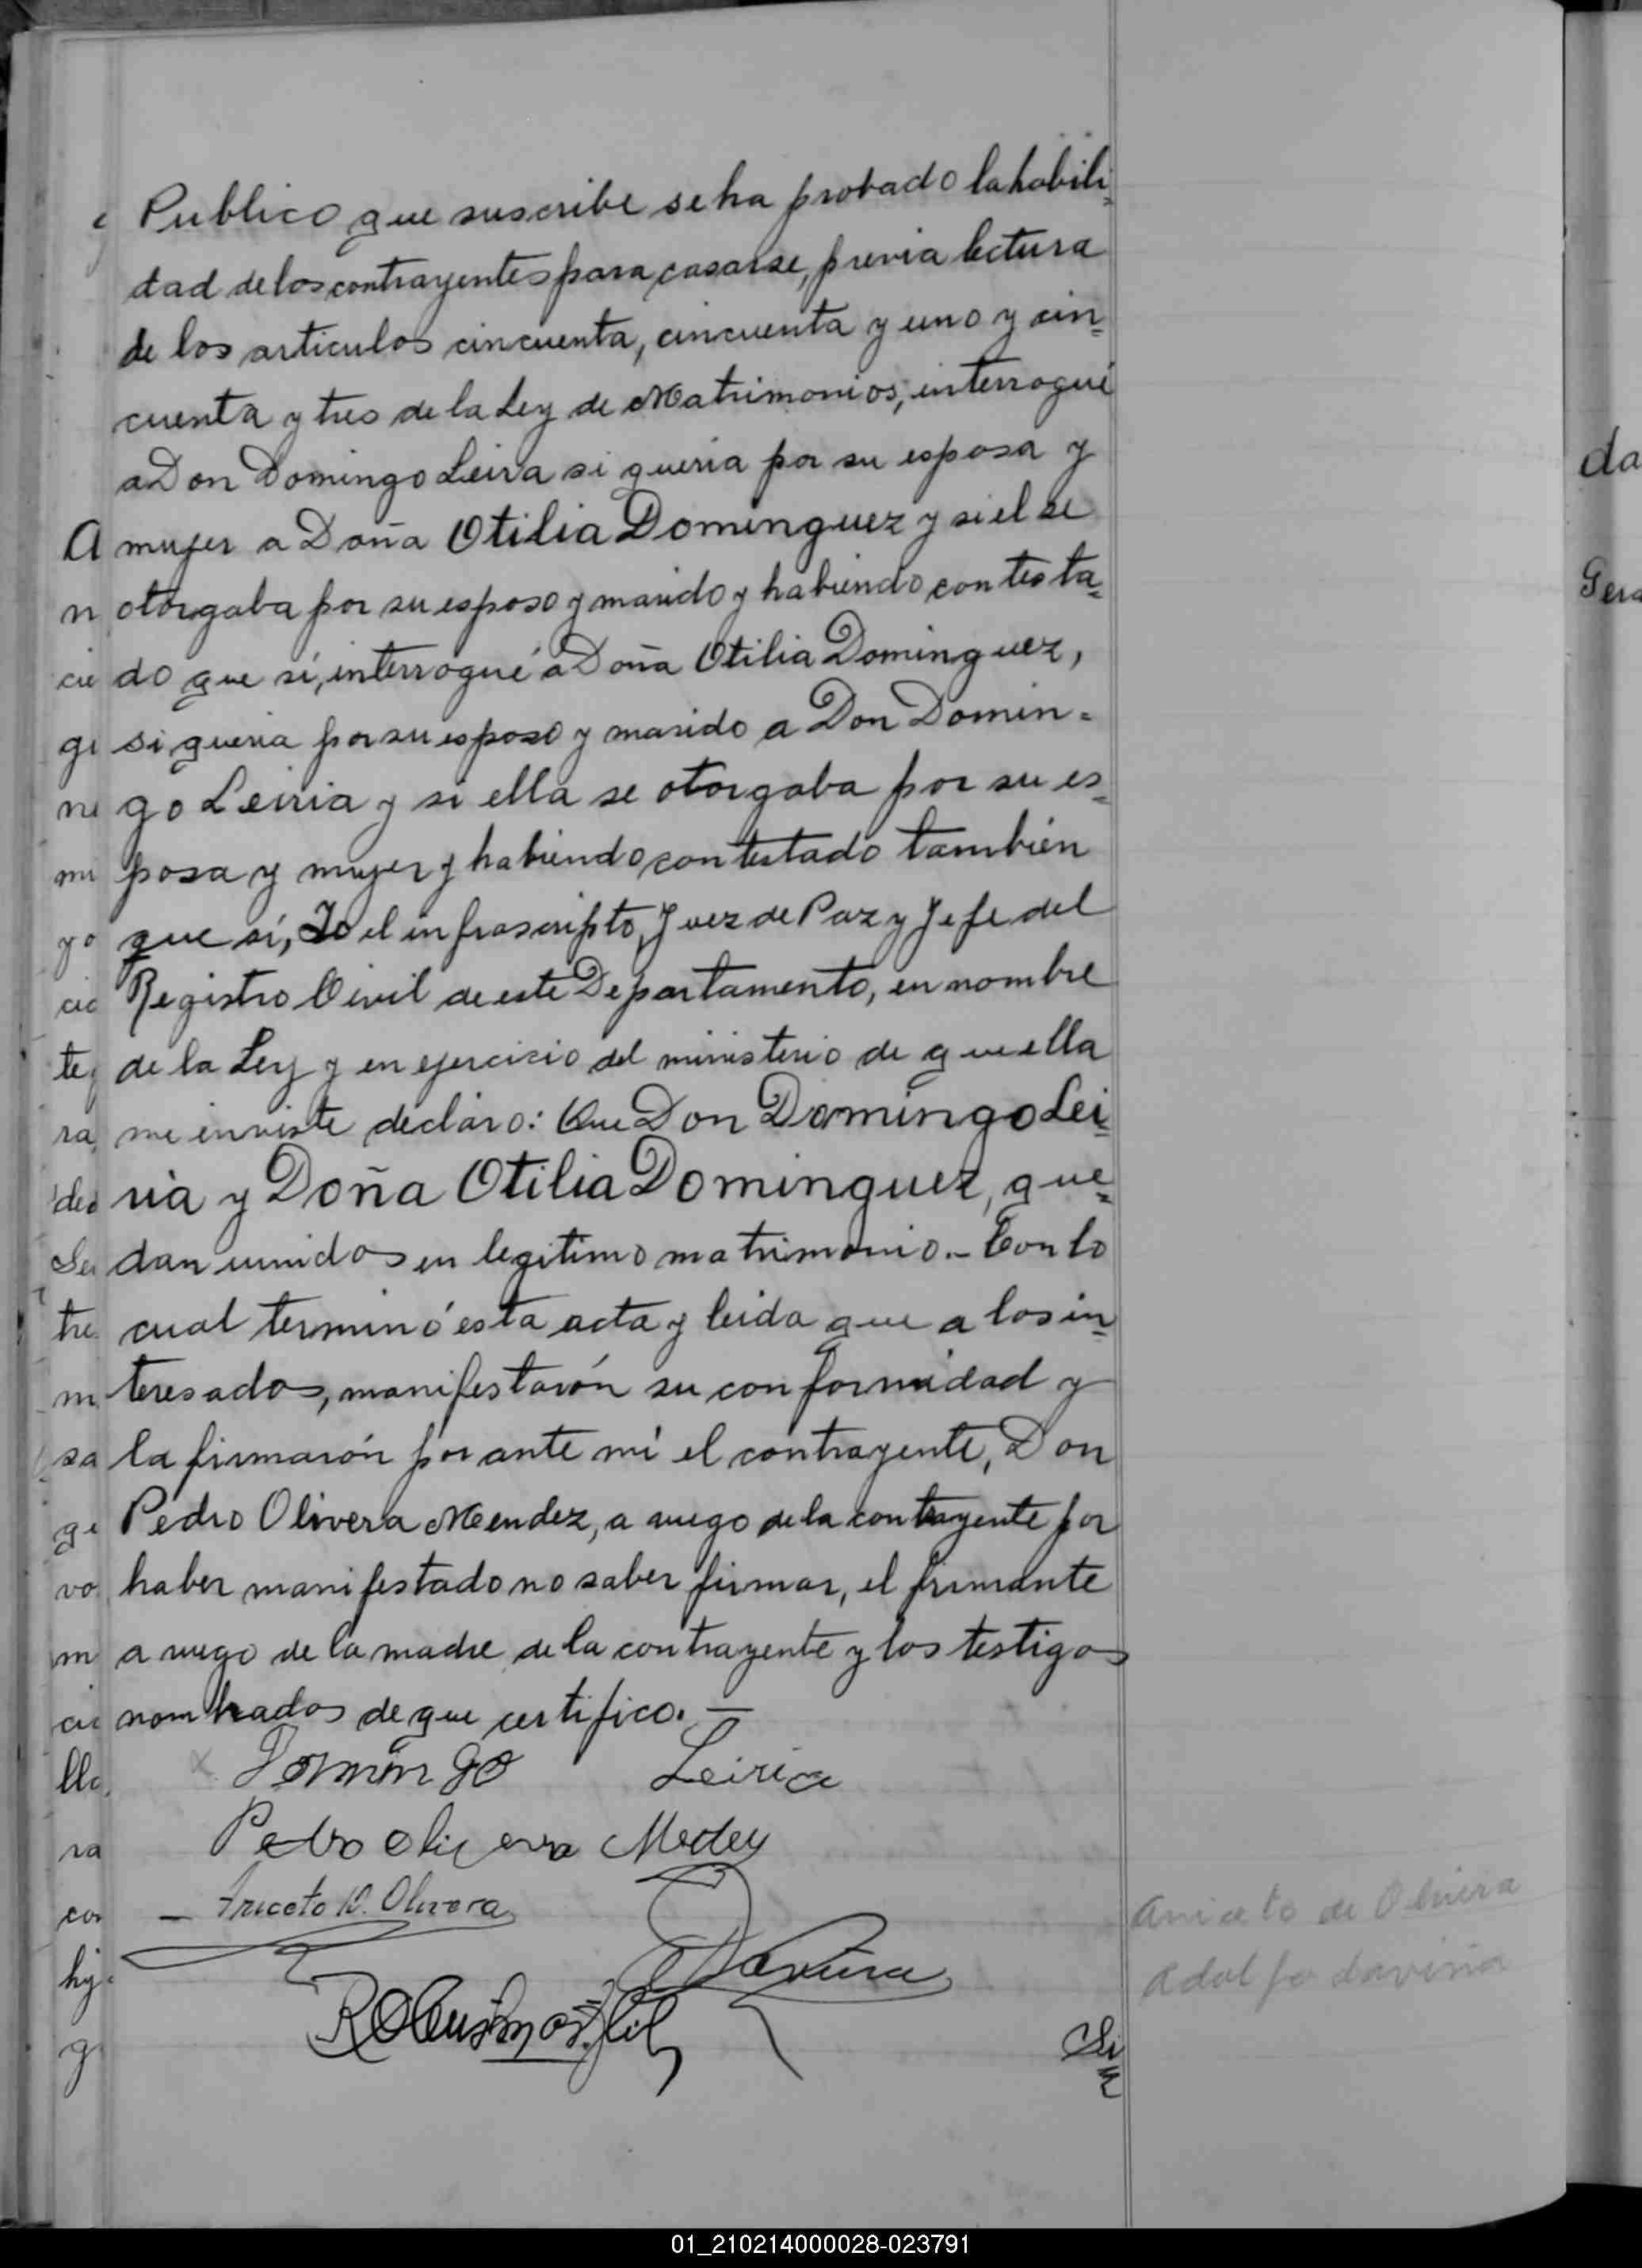 Publico que suscribe se ha probado la habili=
dad de los contrayentes para casarse, previa lectura
de los articulos cincuenta, cincuenta y uno y cin=
cuenta y tres de la Ley de Matrimonios, interrogué
a Don Domingo Leiria si queria por su esposa y
mujer a Doña Otilia Dominguez y si el se
otorgaba por su esposo y marido y habiendo contesta=
do que sí, interrogué a Doña Otilia Dominguez,
si queria por su esposo y marido a Don Domin=
go Leiria y si ella se otorgaba por su es=
posa y mujer y habiendo contestado también
que sí, Yo el infrascripto, Juez de Paz y Jefe del
Registro Civil de este Departamento, en nombre
de la Ley y en ejercicio del ministerio de que ella
me inviste declaro: Que Don Domingo Lei=
ria y Doña Otilia Dominguez, que=
dan unidos en legitimo matrimonio.- Con lo
cual terminó esta acta y leida que a los in=
teresados, manifestarón su conformidad y
la firmarón por ante mí el contrayente, Don
Pedro Olivera Mendez, a ruego de la contrayente por
haber manifestado no saber firmar, el firmante
a ruego de la madre de la contrayente y los testigos
nombrados de que certifico. —
Domingo Leiria
Pedro Olivera Medez
Aniceto D. Olivera
Davina
Aniceto de Olivera
Adolfo davina
da
01_210214000028-023791